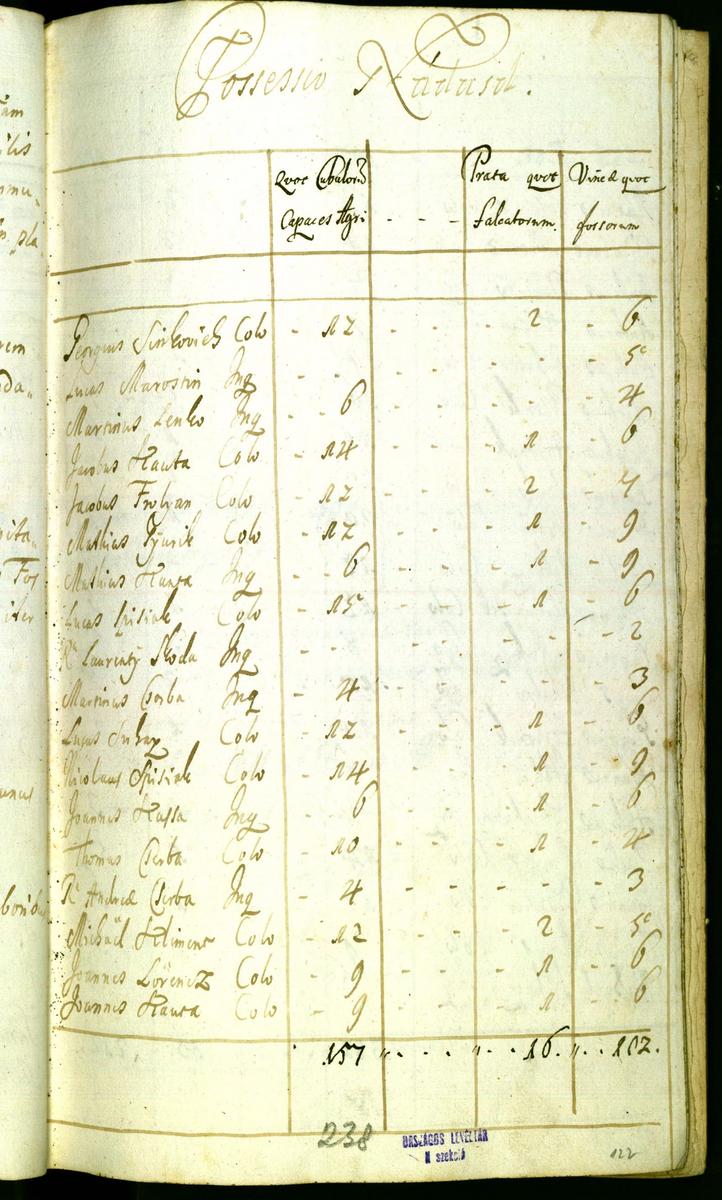 Possessio Nádasd.
Quot Cubulorũ Capaces Agri - - - Prata quot falcatorum. Vineæ quot fossorum
Georgius Sinkovich Colo - 12 - - - 2 - 6
Lucas Marostin Inq - - - - - - - 5
Martinus Lenko Inq - 6 - - - - - 4
Jacobus Hanta Colo - 14 - - - 1 - 6
Jacobus Frolyan Colo - 12 - - - 2 - 7
Mathias Gyurik Colo - 12 - - - 1 - 9
Mathias Hanta Inq - 6 - - - 1 - 9
Lucas Spisiak Colo - 15 - - - 1 - 6
Ra Laurentÿ Skoda Inq - - - - - - - 2
Martinus Cserba Inq - 4 - - - - - 3
Lucas Colo - 12 - - - 1 - 6
Nicolaus Spisiak Colo - 14 - - - 1 - 9
Joannes Hassa Inq - 6 - - - 1 - 6
Thomas Cserba Colo - 10 - - - 1 - 4
Ra Andreæ Cserba Inq - 4 - - - - - 3
Michaël Klimens Colo - 12 - - - 2 - 5
Joannes Lörencz Colo - 9 - - - 1 - 6
Joannes Hanta Colo - 9 - - - 1 - 6
157 „ - - - „ - - 16. „ - - 102.
238
ORSZÁGOS LEVÉLTÁR
N szekció
122